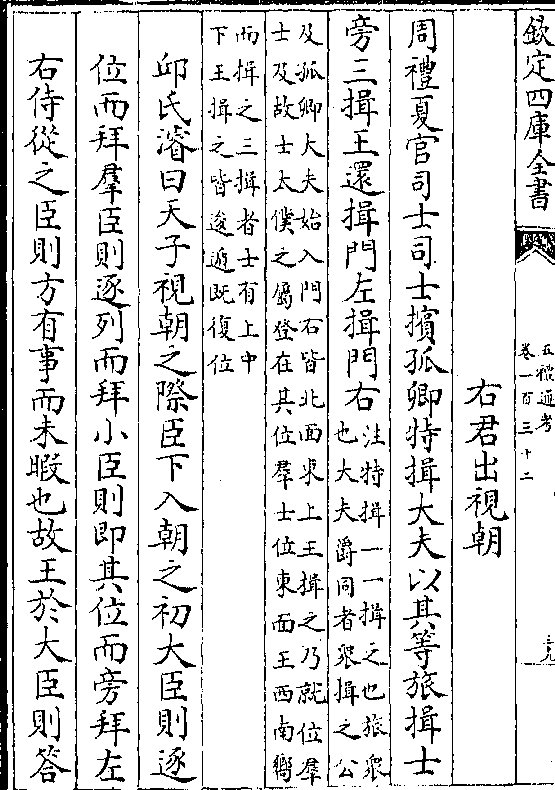 欽定四庫全書
五禮通考
卷一百三十二
三九
右君出視朝
周禮夏官司士司士擯孤卿特揖大夫以其等旅揖士
旁三揖王還揖門左揖門右
注特揖一一揖之也旅眾
也大夫爵同者眾揖之公
及孤卿大夫始入門右皆北面東上王揖之乃就位羣
士及故士太僕之屬登在其位羣士位東面王西南鄉
而揖之三揖者士有上中
下王揖之皆逡遁既復位
邱氏濬曰天子視朝之際臣下入朝之初大臣則逐
位而拜羣臣則逐列而拜小臣則即其位而旁拜左
右侍從之臣則方有事而未暇也故王於大臣則答